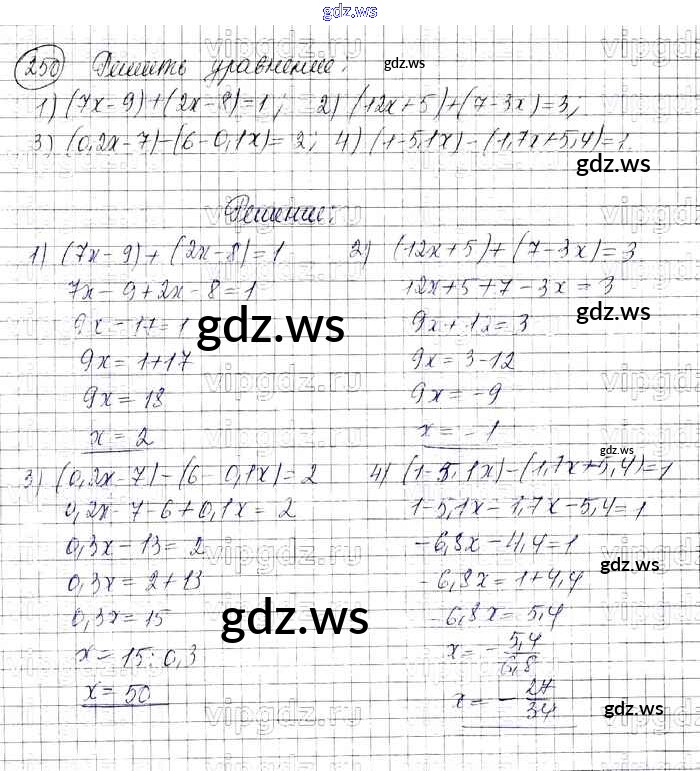 gdz.ws
250 Решить уравнение: gdz.ws
1) (7x-9)+(2x-8)=1; 2) (12x+5)+(7-3x)=3,
3) (0,2x-7)-(6-0,1x)=2; 4) (1-5,1x)-(1,7x+5,4)=1
gdz.ws
Решение:
1) (7x-9)+(2x-8)=1
7x-9+2x-8=1
9x-17=1
gdz.ws
9x=1+17
9x=18
x=2
2) (12x+5)+(7-3x)=3
12x+5+7-3x=3
gdz.ws
9x+12=3
9x=3-12
9x=-9
x=-1
3) (0,2x-7)-(6-0,1x)=2
0,2x-7-6+0,1x=2
0,3x-13=2
0,3x=2+13
0,3x=15
gdz.ws
x=15:0,3
x=50
gdz.ws
4) (1-5,1x)-(1,7x+5,4)=1
1-5,1x-1,7x-5,4=1
-6,8x-4,4=1
gdz.ws
-6,8x=1+4,4
-6,8x=5,4
x=-5,4/6,8
x=-27/34
gdz.ws
vipgdz.ru